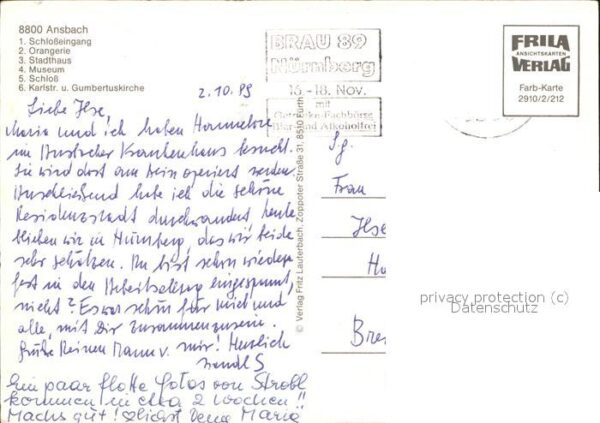 8800 Ansbach
1. Schloßeingang
2. Orangerie
3. Stadthaus
4. Museum
5. Schloß
6. Karlstr. u. Gumbertuskirche
BRAU 89
Nürnberg
16.-18. Nov.
mit
Getränke-Fachbörse
Bier und Alkoholfrei
8510 Fürth
FRILA
ANSICHTSKARTEN
VERLAG
Farb-Karte
2910/2/212
2.10.89
Liebe Ilse,
Maria und ich haben Hannelore
im Ansbacher Krankenhaus besucht.
Sie wird dort am Bein operiert werden
Anschließend habe ich die schöne
Residenzstadt durchwandert heute
bleiben wir in Nürnberg, das wir beide
sehr schätzen. Du bist schon wieder
fest in den Arbeitsalltag eingespannt,
nicht? Es war schön für mich und
alle, mit Dir zusammenzusein.
Grüße Deinen Mann v. mir! Herzlich
Ein paar flotte Fotos von Strobl
kommen in etwa 2 Wochen!!
Machs gut! Maria
© Verlag Fritz Lauterbach, Zoppoter Straße 31, 8510 Fürth
Sg.
Frau
Ilse
Ha
Bre
privacy protection (c)
Datenschutz